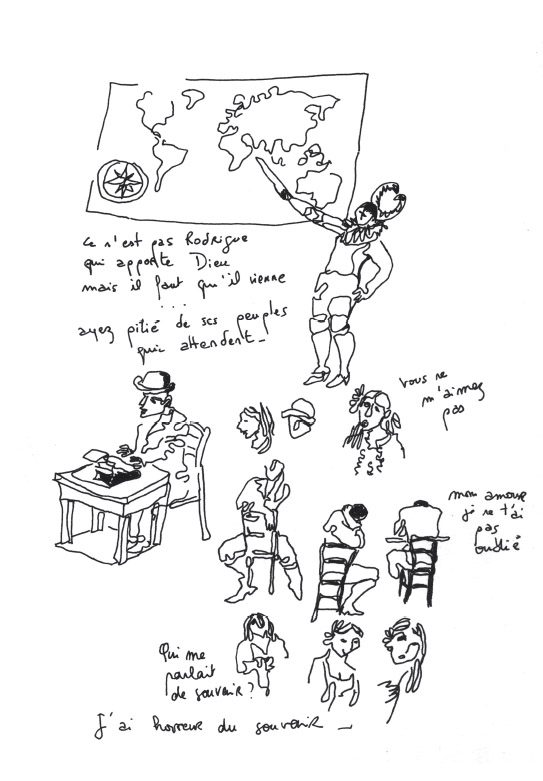 ce n'est pas Rodrigue
qui apporte Dieu
mais il faut qu'il vienne
...
ayez pitié de ses peuples
qui attendent_
Vous ne
m'aimez
pas
mon amour
je ne t'ai
pas
oublié
Qui me
parlait
de souvenir ?
J'ai horreur du souvenir _